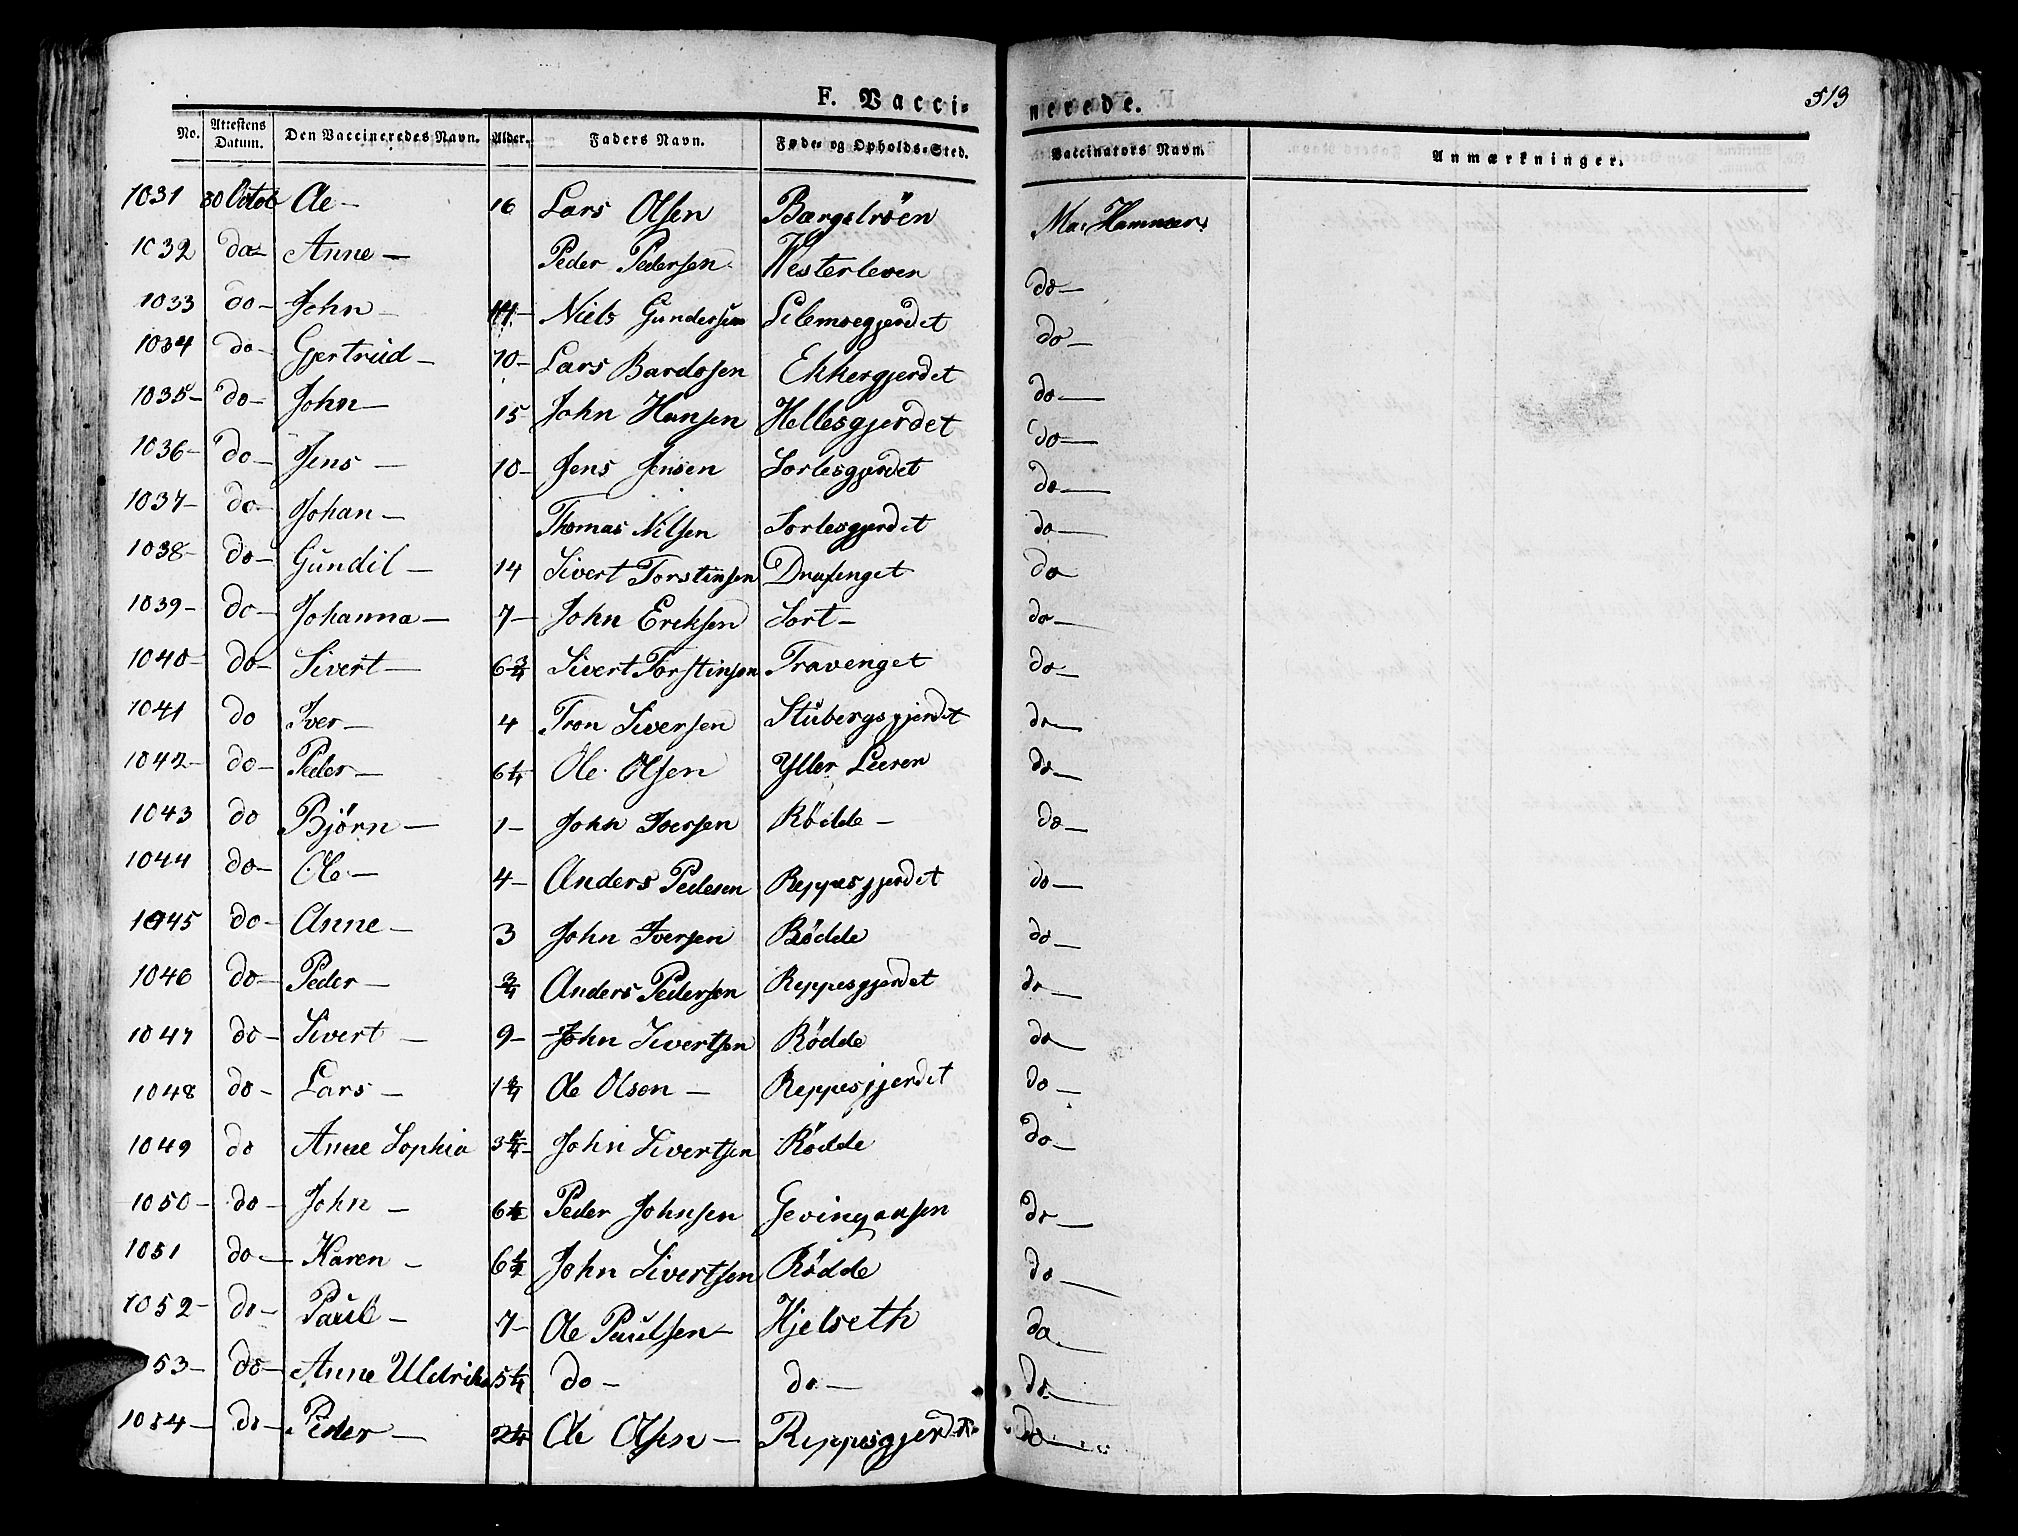 F. Vacci- nerede. 513
No. Attestens Datum. Den Vaccineredes Navn. Alder. Faders Navn. Føde- og Opholds-Sted. Vaccinators Navn. Anmærkninger.
1031 30 Octob Ole - 16 Lars Olsen Hammer
1032 do - Anne - Peder Pedersen Westerleven do -
1033 do - John - Niels Gundersen do -
1034 do - Gjertrud - 10 - Lars Bardosen Ekkergjerdet do -
1035 - do - John - 15 John Hansen Hellesgjerdet do -
1036 - do - Jens - 10 - Jens Jensen Sortesgjerdet do -
1037 - do - Johan - Thomas Nilsen Sortesgjerdet do -
1038 - do - Gundil - 14 Sivert Torstinsen do
1039 - do - Johanna - 7 - John Eriksen Sort - do -
1040 - do - Sivert - 6 3/4 Sivert Torstinsen Travenget do -
1041 do Iver - 4 Tron Siversen Stubergsgjerdet do -
1042 - do - Peder - 6 1/4 Ole Olsen do -
1043 do Bjørn - 1 - John Iversen Rödde - do -
1044 do - Ole - 4 - Anders Pedesen Reppesgjerdet do -
1045 do - Anne - 3 John Iversen Rödde do -
1046 do - Peder - 3/4 Anders Pedersen Reppesgjerdet do -
1047 do - Sivert - 9 - John Sivertsen Rödde do -
1048 do - Lars - Ole Olsen - Reppesgjerdet do -
1049 do Anne Sophia John Sivertsen Rödde do -
1050 - do - John - Peder Johnsen Gevingaasen do -
1051 do - Karen - 6 1/2 John Sivertsen Rödde do -
1052 - do - Paul - 7 - Ole Paulsen - Hjelseth do -
1053 - do - Anne Uldrika 5 1/4 do - do - do -
1054 - do - Peder - 2 1/4 Ole Olsen - Reppesgjerdet do -